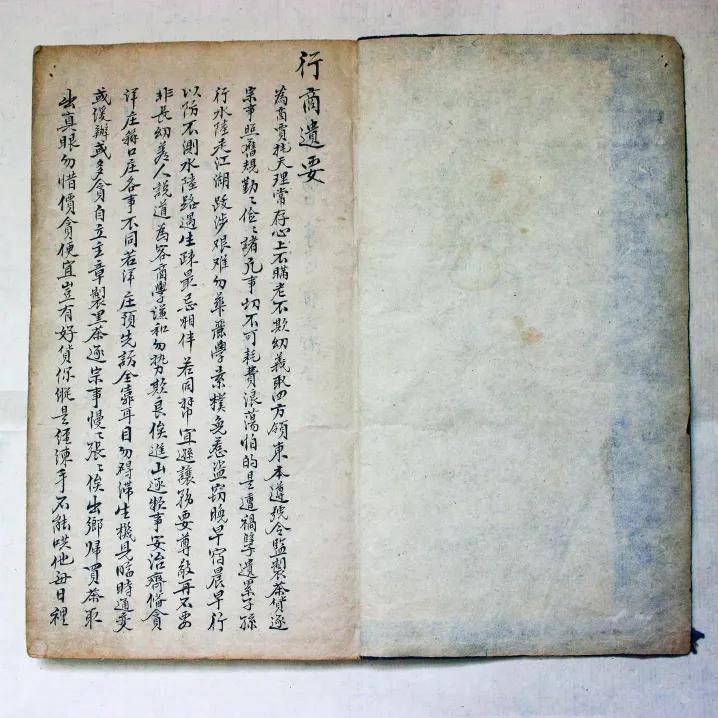 行商遺要
為商賈把天理常存心上不瞞老不欺幼義取四方領東本遵號令監製茶貨逐
宗事照舊規勤〻儉〻諸凡事切不可耗費浪蕩怕的是遭禍孽遺累子孫
行水陸走江湖跋涉艱难勿華麗學素樸免惹盜窃晚早宿晨早行
以防不測水陸路遇生疎最忌相伴若同幫宜遜讓務要尊敬再不要
非長幼差人說道為客商學謙和勿勢欺良俟進山逐宗事安治齊備貪
洋庄辦口庄各事不同若洋庄預先訪全靠耳目勿碍滯生機見臨時通变
或緩辦或多貪自立主章製里茶逐宗事慢〻張〻俟出鄉帰買茶取
出真眼勿惜價貪便宜豈有好貨你縱是經練手不能哄他每日裡